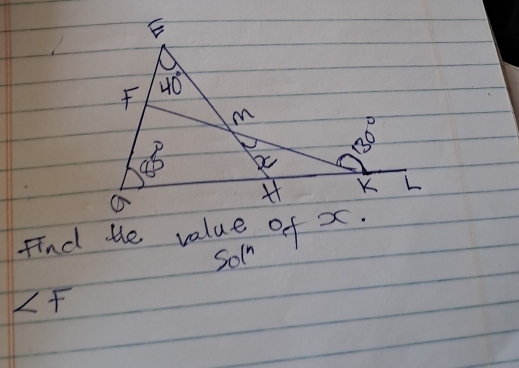 E
40°
F
m
130°
x
G
H
K
L
Find the value of x.
Soln
<F